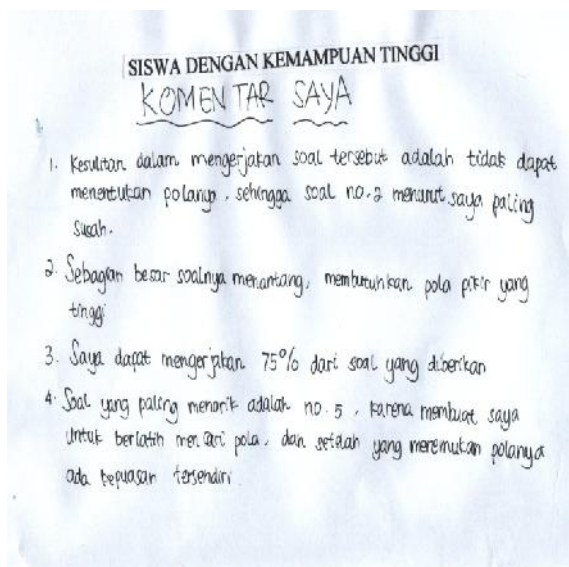 SISWA DENGAN KEMAMPUAN TINGGI
KOMENTAR SAYA
1. Kesulitan dalam mengerjakan soal tersebut adalah tidak dapat
menentukan polanya, sehingga soal no.2 menurut saya paling
susah.
2. Sebagian besar soalnya menantang, membutuhkan pola pikir yang
tinggi
3. Saya dapat mengerjakan 75% dari soal yang diberikan
4. Soal yang paling menarik adalah no. 5, karena membuat saya
untuk berlatih mencari pola, dan setelah yang menemukan polanya
ada kepuasan tersendiri.